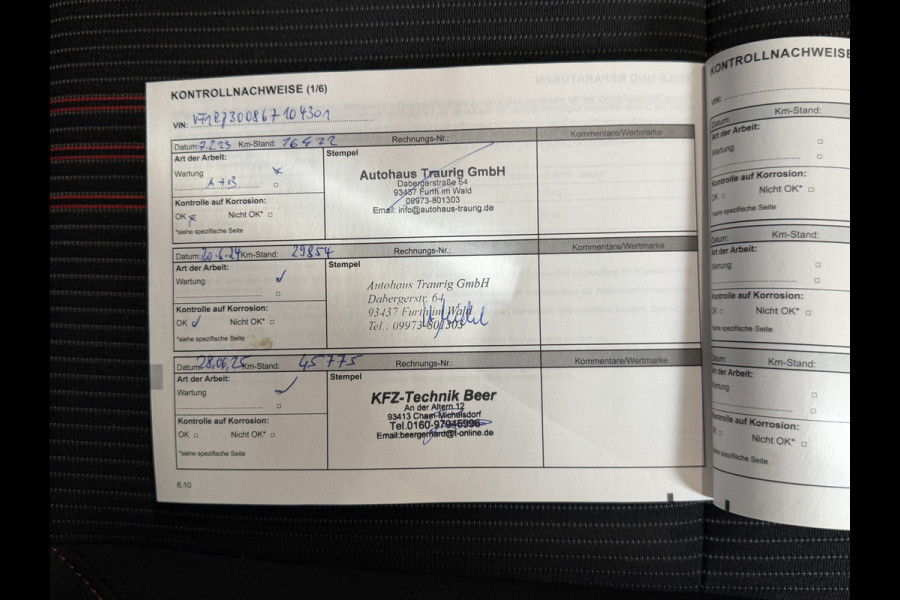 KONTROLLNACHWEISE (1/6)
VIN:
Datum: 7.2.23 Km-Stand: 16422 Rechnungs-Nr.: Kommentare/Wertmarke
Art der Arbeit:
Wartung
A + B
Kontrolle auf Korrosion:
OK Nicht OK*
*siehe spezifische Seite
Stempel
Autohaus Traurig GmbH
Dabergerstraße 64
93437 Furth im Wald
09973-801303
Email: info@autohaus-traurig.de
Datum: 20.6.24 Km-Stand: 29854 Rechnungs-Nr.: Kommentare/Wertmarke
Art der Arbeit:
Wartung
Kontrolle auf Korrosion:
OK Nicht OK*
*siehe spezifische Seite
Stempel
Autohaus Traurig GmbH
Dabergerstr. 64
93437 Furth im Wald
Tel.: 09973-801303
Datum: 28.06.25 Km-Stand: 45775 Rechnungs-Nr.: Kommentare/Wertmarke
Art der Arbeit:
Wartung
Kontrolle auf Korrosion:
OK Nicht OK*
*siehe spezifische Seite
Stempel
KFZ-Technik Beer
An der Altern 12
93413 Cham-Michelsdorf
Tel.0160-97946996
Email:beergerhard@t-online.de
6.10
KONTROLLNACHWEISE
VIN:
Datum: Km-Stand:
Art der Arbeit:
Wartung
Kontrolle auf Korrosion:
OK Nicht OK*
*siehe spezifische Seite
Datum: Km-Stand:
Art der Arbeit:
Wartung
Kontrolle auf Korrosion:
OK Nicht OK*
*siehe spezifische Seite
Datum: Km-Stand:
Art der Arbeit:
Wartung
Kontrolle auf Korrosion:
OK Nicht OK*
*siehe spezifische Seite